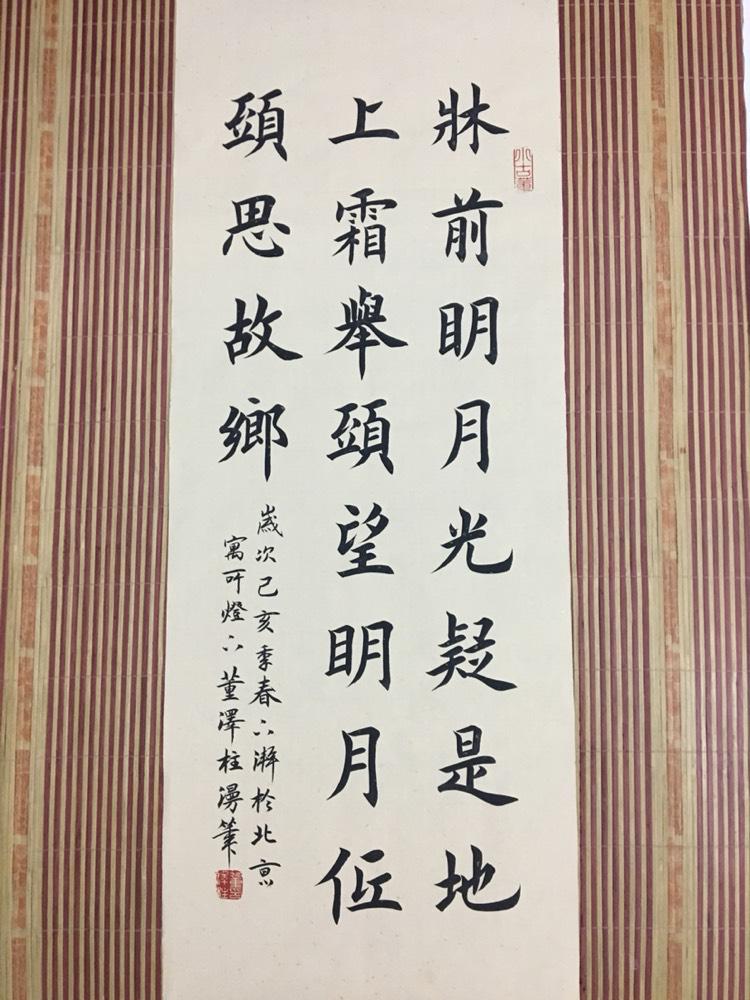 牀前明月光疑是地
上霜舉頭望明月低
頭思故鄉
歲次己亥季春下澣於北京
寓所燈下董澤柱漫筆